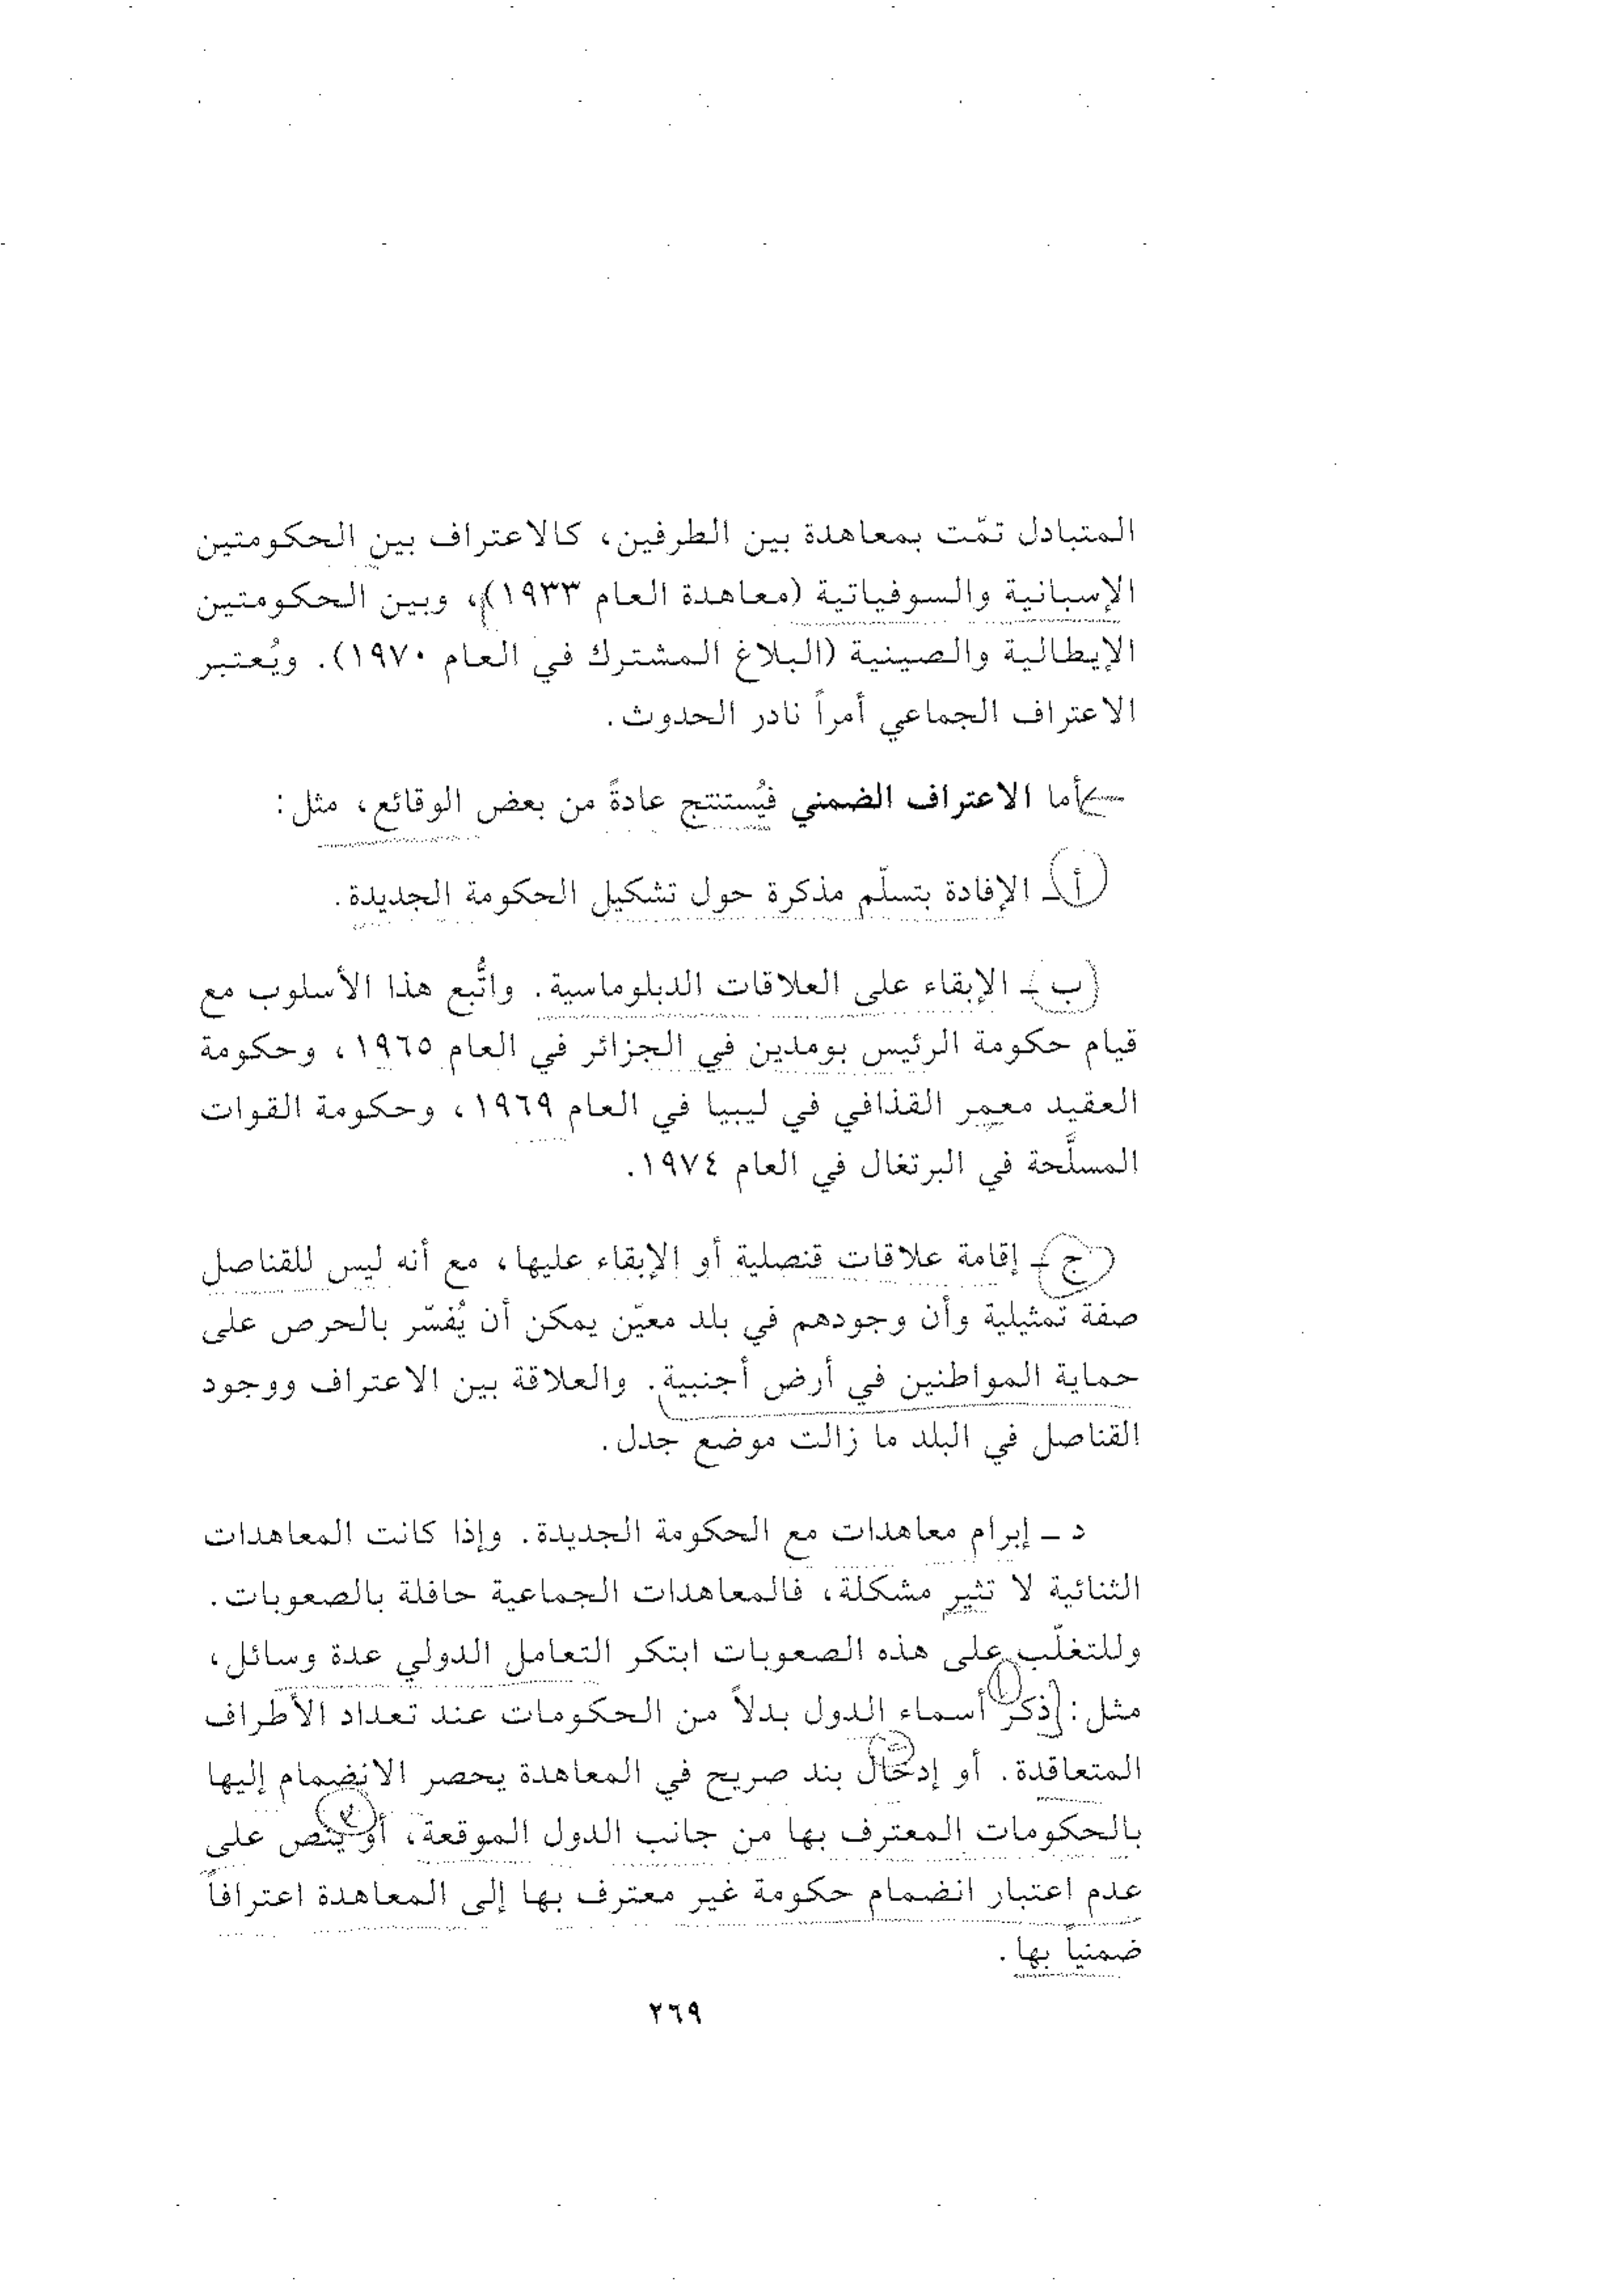 المتبادل تمّت بمعاهدة بين الطرفين، كالاعتراف بين الحكومتين
الإسبانية والسوفياتية (معاهدة العام ١٩٣٣)، وبين الحكومتين
الإيطالية والصينية (البلاغ المشترك في العام ١٩٧٠). ويُعتبر
الاعتراف الجماعي أمراً نادر الحدوث.
أما الاعتراف الضمني فيُستنتج عادةً من بعض الوقائع، مثل:
أ ـ الإفادة بتسلّم مذكرة حول تشكيل الحكومة الجديدة.
ب ـ الإبقاء على العلاقات الدبلوماسية. واتُّبع هذا الأسلوب مع
قيام حكومة الرئيس بومدين في الجزائر في العام ١٩٦٥، وحكومة
العقيد معمر القذافي في ليبيا في العام ١٩٦٩، وحكومة القوات
المسلَّحة في البرتغال في العام ١٩٧٤.
ج ـ إقامة علاقات قنصلية أو الإبقاء عليها، مع أنه ليس للقناصل
صفة تمثيلية وأن وجودهم في بلد معيّن يمكن أن يُفسّر بالحرص على
حماية المواطنين في أرض أجنبية. والعلاقة بين الاعتراف ووجود
القناصل في البلد ما زالت موضع جدل.
د ـ إبرام معاهدات مع الحكومة الجديدة. وإذا كانت المعاهدات
الثنائية لا تثير مشكلة، فالمعاهدات الجماعية حافلة بالصعوبات.
وللتغلّب على هذه الصعوبات ابتكر التعامل الدولي عدة وسائل،
مثل: ذكر أسماء الدول بدلاً من الحكومات عند تعداد الأطراف
المتعاقدة. أو إدخال بند صريح في المعاهدة يحصر الانضمام إليها
بالحكومات المعترف بها من جانب الدول الموقعة، أو ينص على
عدم اعتبار انضمام حكومة غير معترف بها إلى المعاهدة اعترافاً
ضمنياً بها.
٢٦٩